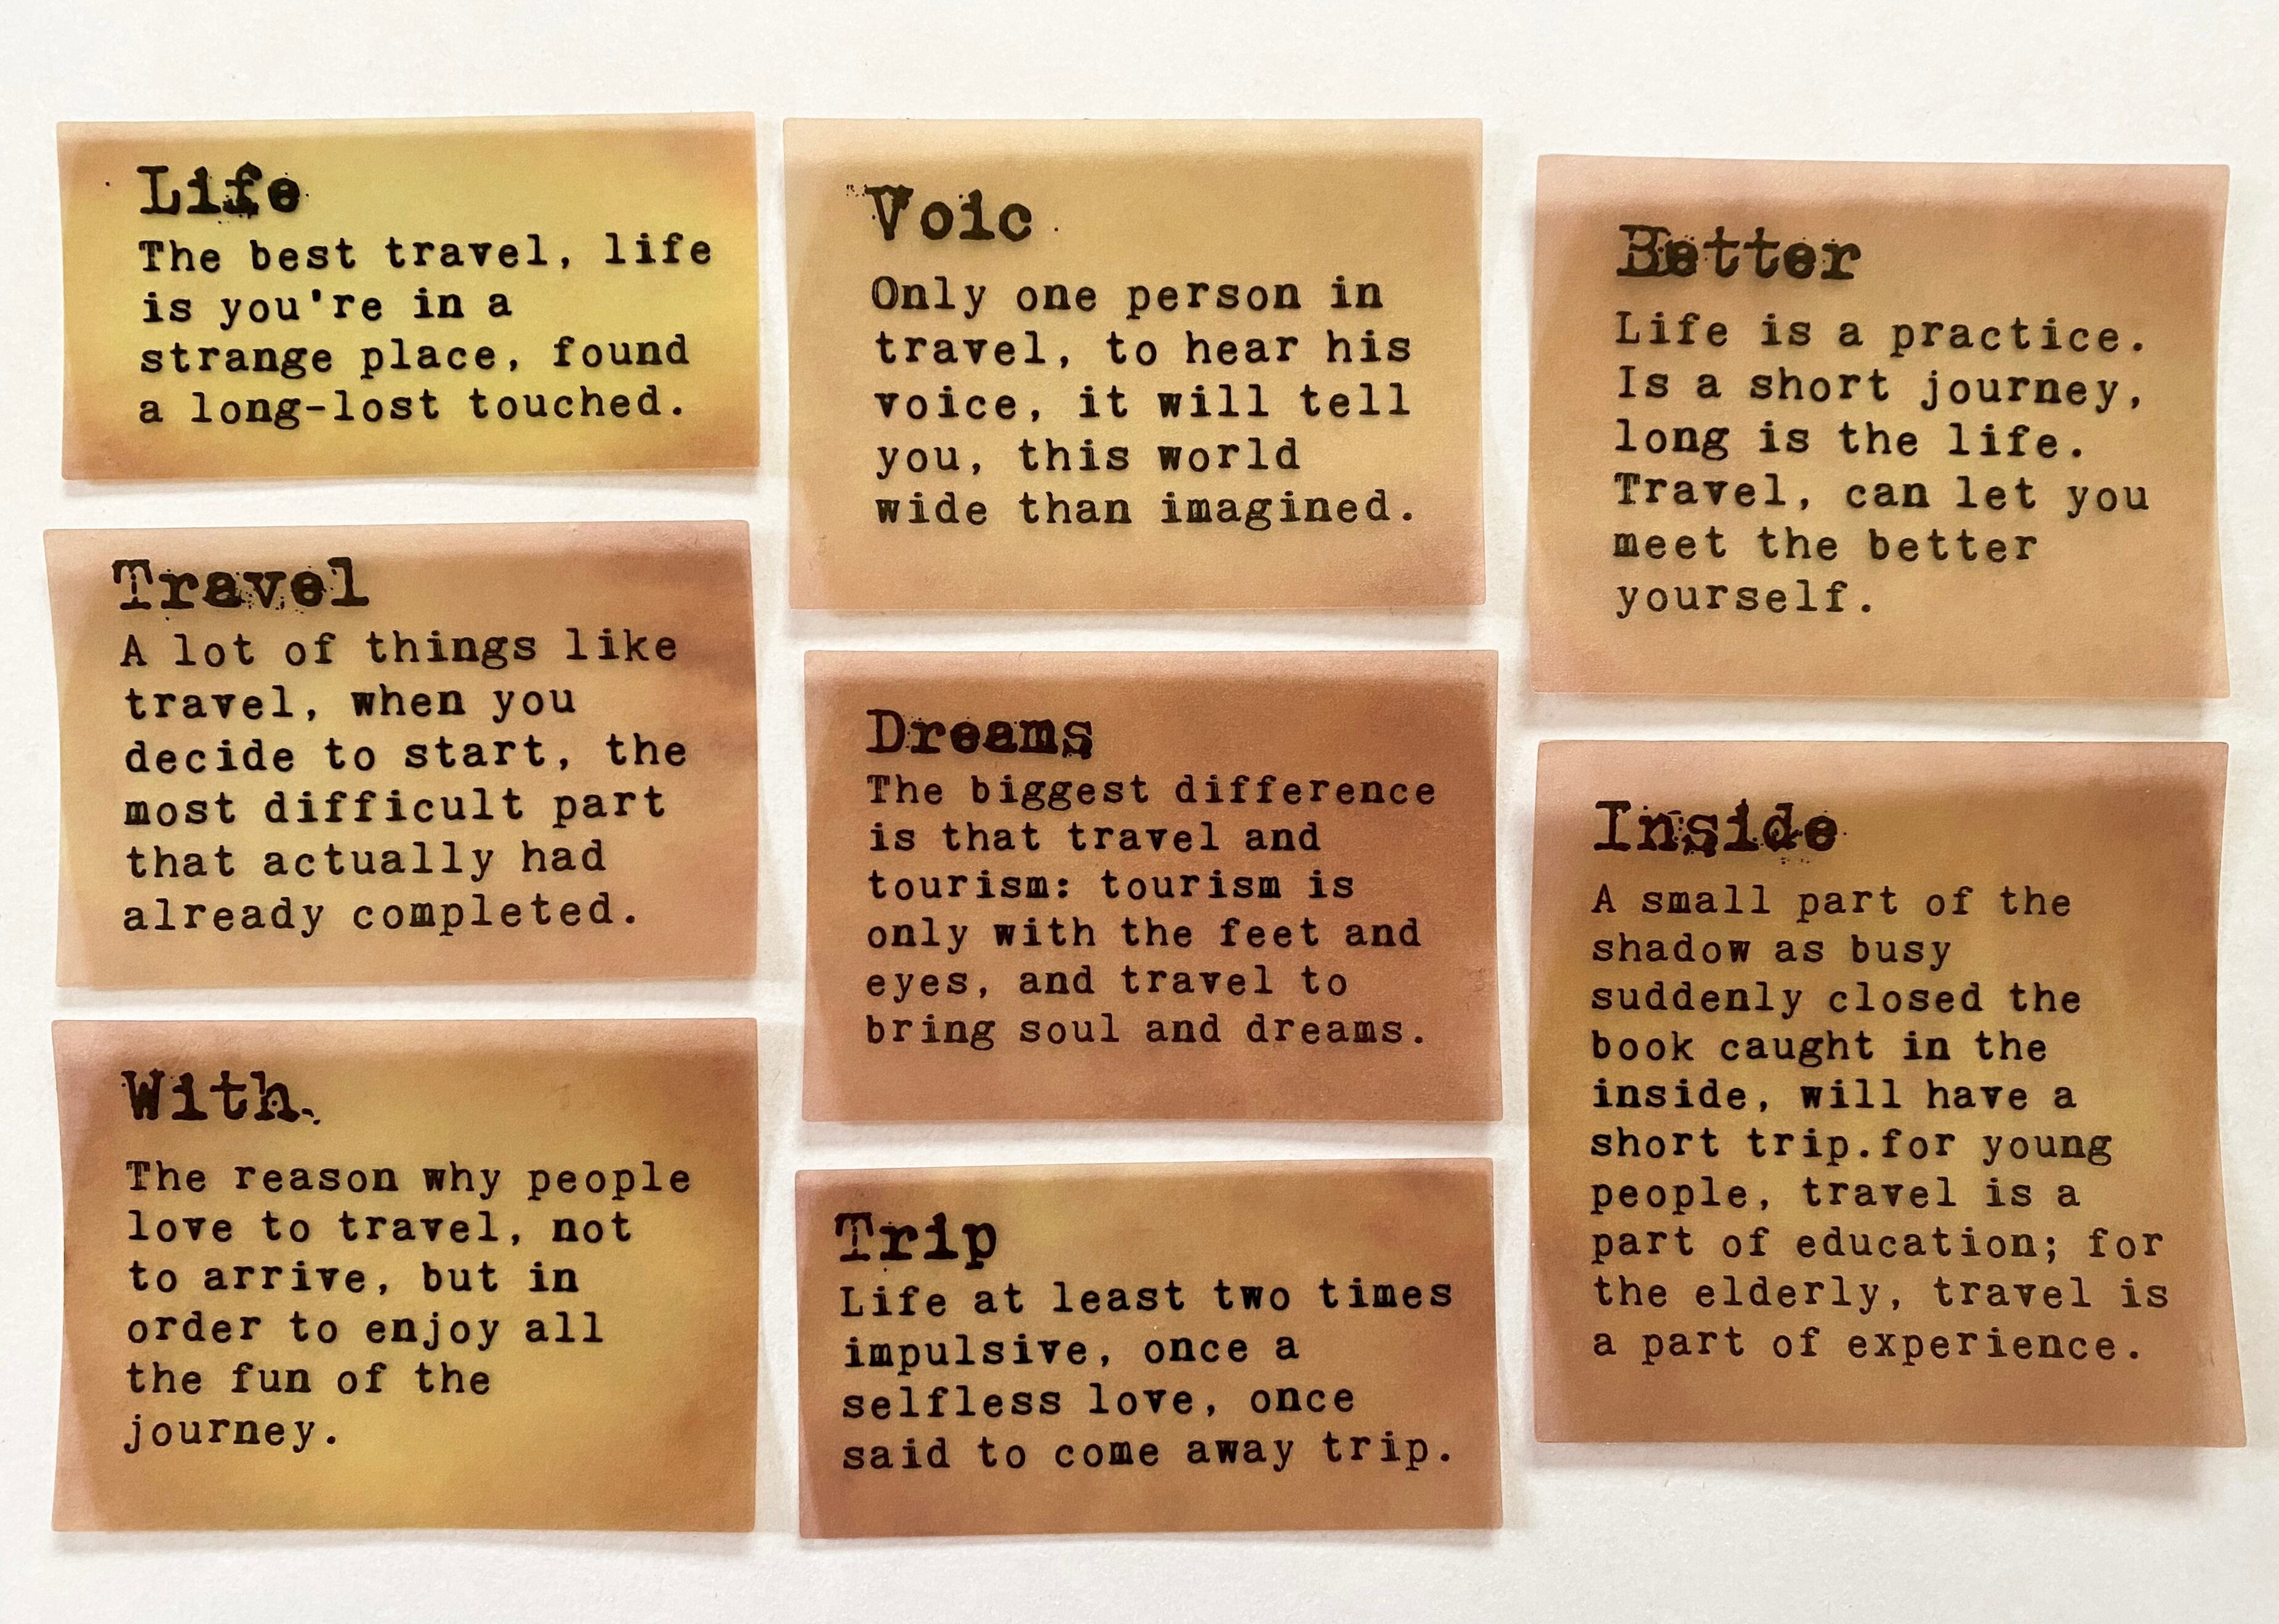 Life
The best travel, life
is you're in a
strange place, found
a long-lost touched.
Travel
A lot of things like
travel, when you
decide to start, the
most difficult part
that actually had
already completed.
With.
The reason why people
love to travel, not
to arrive, but in
order to enjoy all
the fun of the
journey.
Voic
Only one person in
travel, to hear his
voice, it will tell
you, this world
wide than imagined.
Dreams
The biggest difference
is that travel and
tourism: tourism is
only with the feet and
eyes, and travel to
bring soul and dreams.
Trip
Life at least two times
impulsive, once a
selfless love, once
said to come away trip.
Better
Life is a practice.
Is a short journey,
long is the life.
Travel, can let you
meet the better
yourself.
Inside
A small part of the
shadow as busy
suddenly closed the
book caught in the
inside, will have a
short trip.for young
people, travel is a
part of education; for
the elderly, travel is
a part of experience.